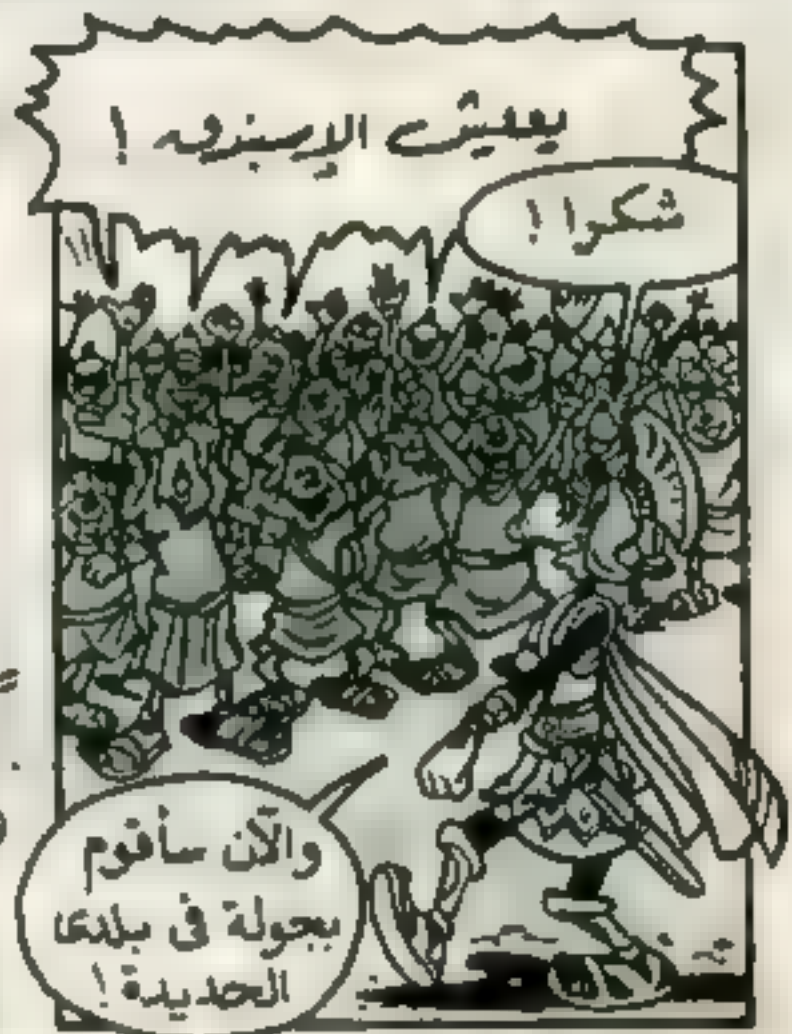 يعيش !
شكرا !
والآن سأقوم
بجولة فى بلدى
الجديدة !